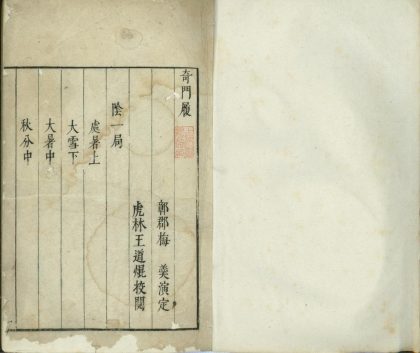 奇門履
鄣郡梅 羹演定
虎林王道焜挍閱
陰一局
處暑上
大雪下
大暑中
秋分中